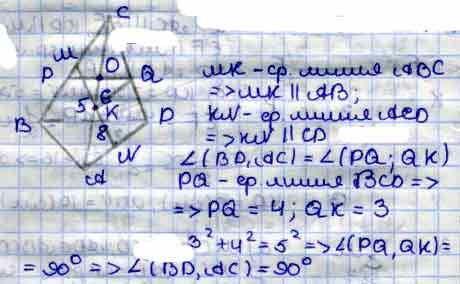 C
M
P
O
Q
6
5
K
B
D
8
N
A
MK - ср. линия ABC
=> MK || AB;
KN - ср. линия ACD
=> KN || CD
∠(BD, AC) = ∠(PQ; QK)
PQ - ср. линия BCD =>
=> PQ = 4; QK = 3
3² + 4² = 5² => ∠(PQ, QK) =
= 90° => ∠(BD, AC) = 90°